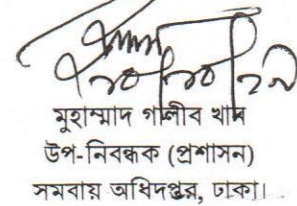 ২০/১০/১৯
মুহাম্মাদ গালীব খান
উপ-নিবন্ধক (প্রশাসন)
সমবায় অধিদপ্তর, ঢাকা।